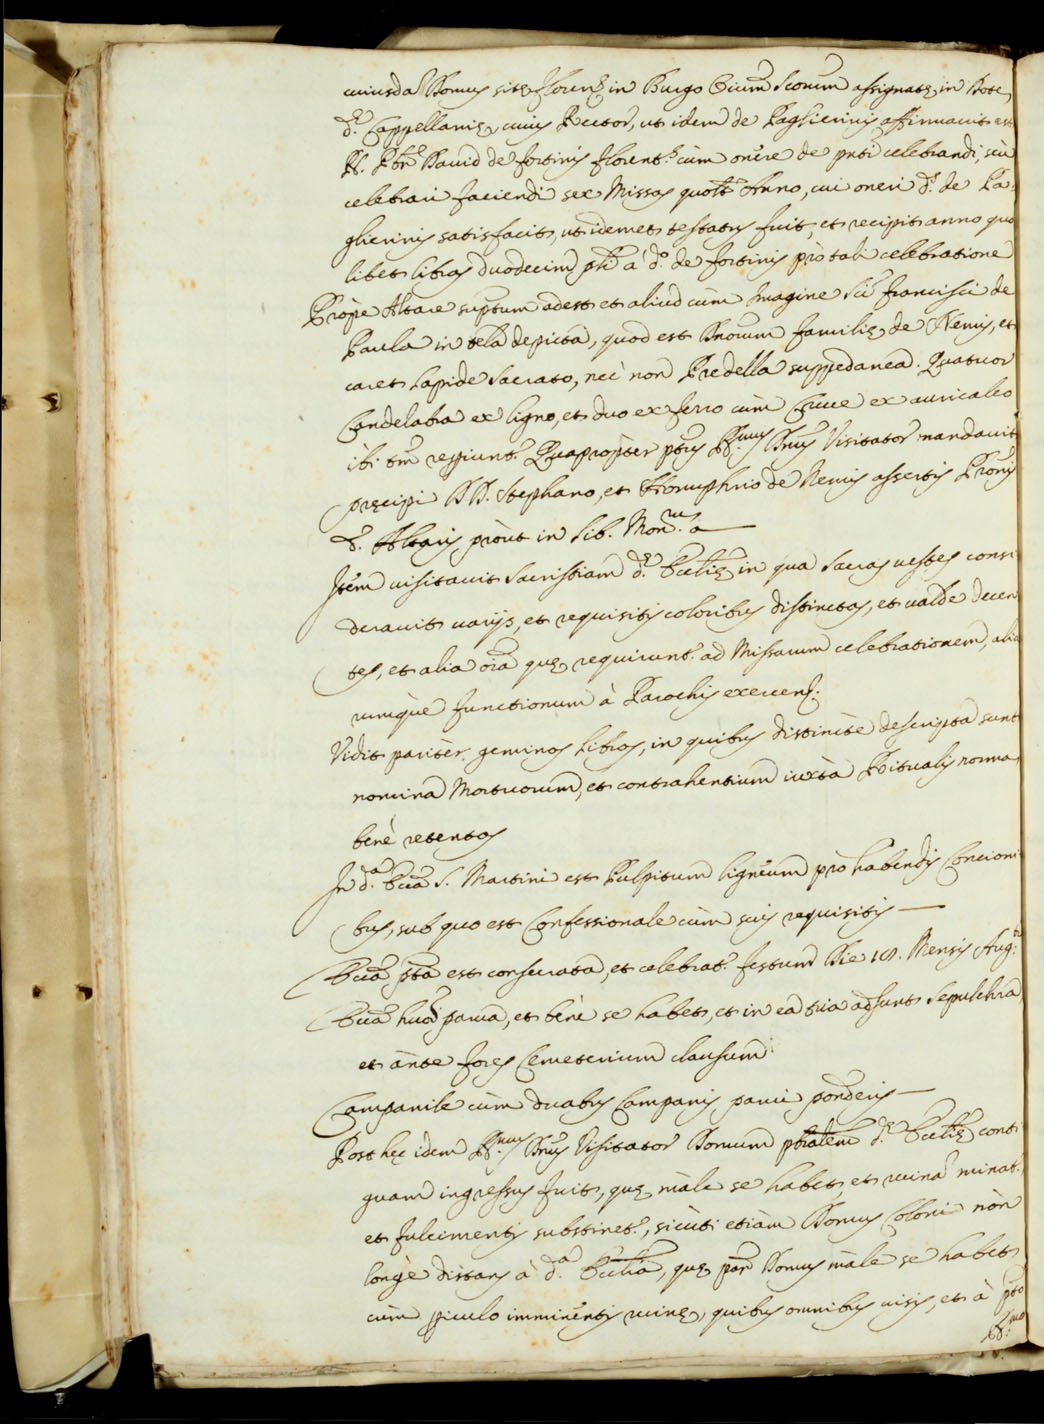 cuiusda Domus sitę Florentię in Burgo Oium Scorum assignatę in Dote
dę Cappellanię, cuius Rector, ut idem de Paglierinis affirmavit est
R. Pbr David de Fortinis Florents cùm onere de pnti celebrandi, seù
celebrari faciendi sex Missas quolt Anno, cui oneri ds de Pa-
glierinis satisfacit, ut idemet testatus fuit, et recipit anno quo
libet libras duodecim à do de Fortinis prò tali celebratione
Propè Altare suptum adest et aliud cùm Imagine Sti Francisci de
Paula in tela depicta, quod est Dnorum familię de Nemis, et
caret Lapide Sacrato, nec non Predella suppedanea. Quatuor
Candelabra ex ligno, et duo ex ferro cùm Cruce ex auricalco
ibi tm repiunt. Quapropter ptus Rmus Dnus Visitator mandavit
pręcipi DD. Stephano, et Honuphrio de Nemis assertis Pronis
d. Altaris proùt in lib. Monrum a
Item visitavit Sacristiam dę Ecclię in qua Sacras vestes consi
deravit varijs, et requisitis coloribus distinctas, et valdè decen
tes, et alia oia quę requirunt. ad Missarum celebrationem, alia
rumque functionum à Parochis exercend.
Vidit paritèr geminos Libros, in quibus distinctè descripta sunt
nomina Mortuorum, et contrahentium iuxtà Ritualis norma
benè retentos
In da Eccia S. Martini est Pulpitum ligneum prò habendis Concioni
bus, sub quo est Confessionale cùm suis requisitis
Eccia pta est consecrata, et celebrat. festum Die 18. Mensis Aug.ti
Eccia huiusmodi parva, et benè se habet, et in ea tria adsunt Sepulchra
et antè fores Cemeterium clausum
Campanile cùm duabus Campanis parvi ponderis
Post hęc idem Rmus Dnus Visitator Domum pbralem dę Ecclię conti
guam ingressus fuit, quę malè se habet, et ruina minat.
et fulcimentis substinet., sicùti etiàm Domus Coloni nòn
longè distans à da Ecclia, quę par Domus malè se habet
cùm piculo imminentis ruinę, quibus omnibus visis, et à pto
Rmo